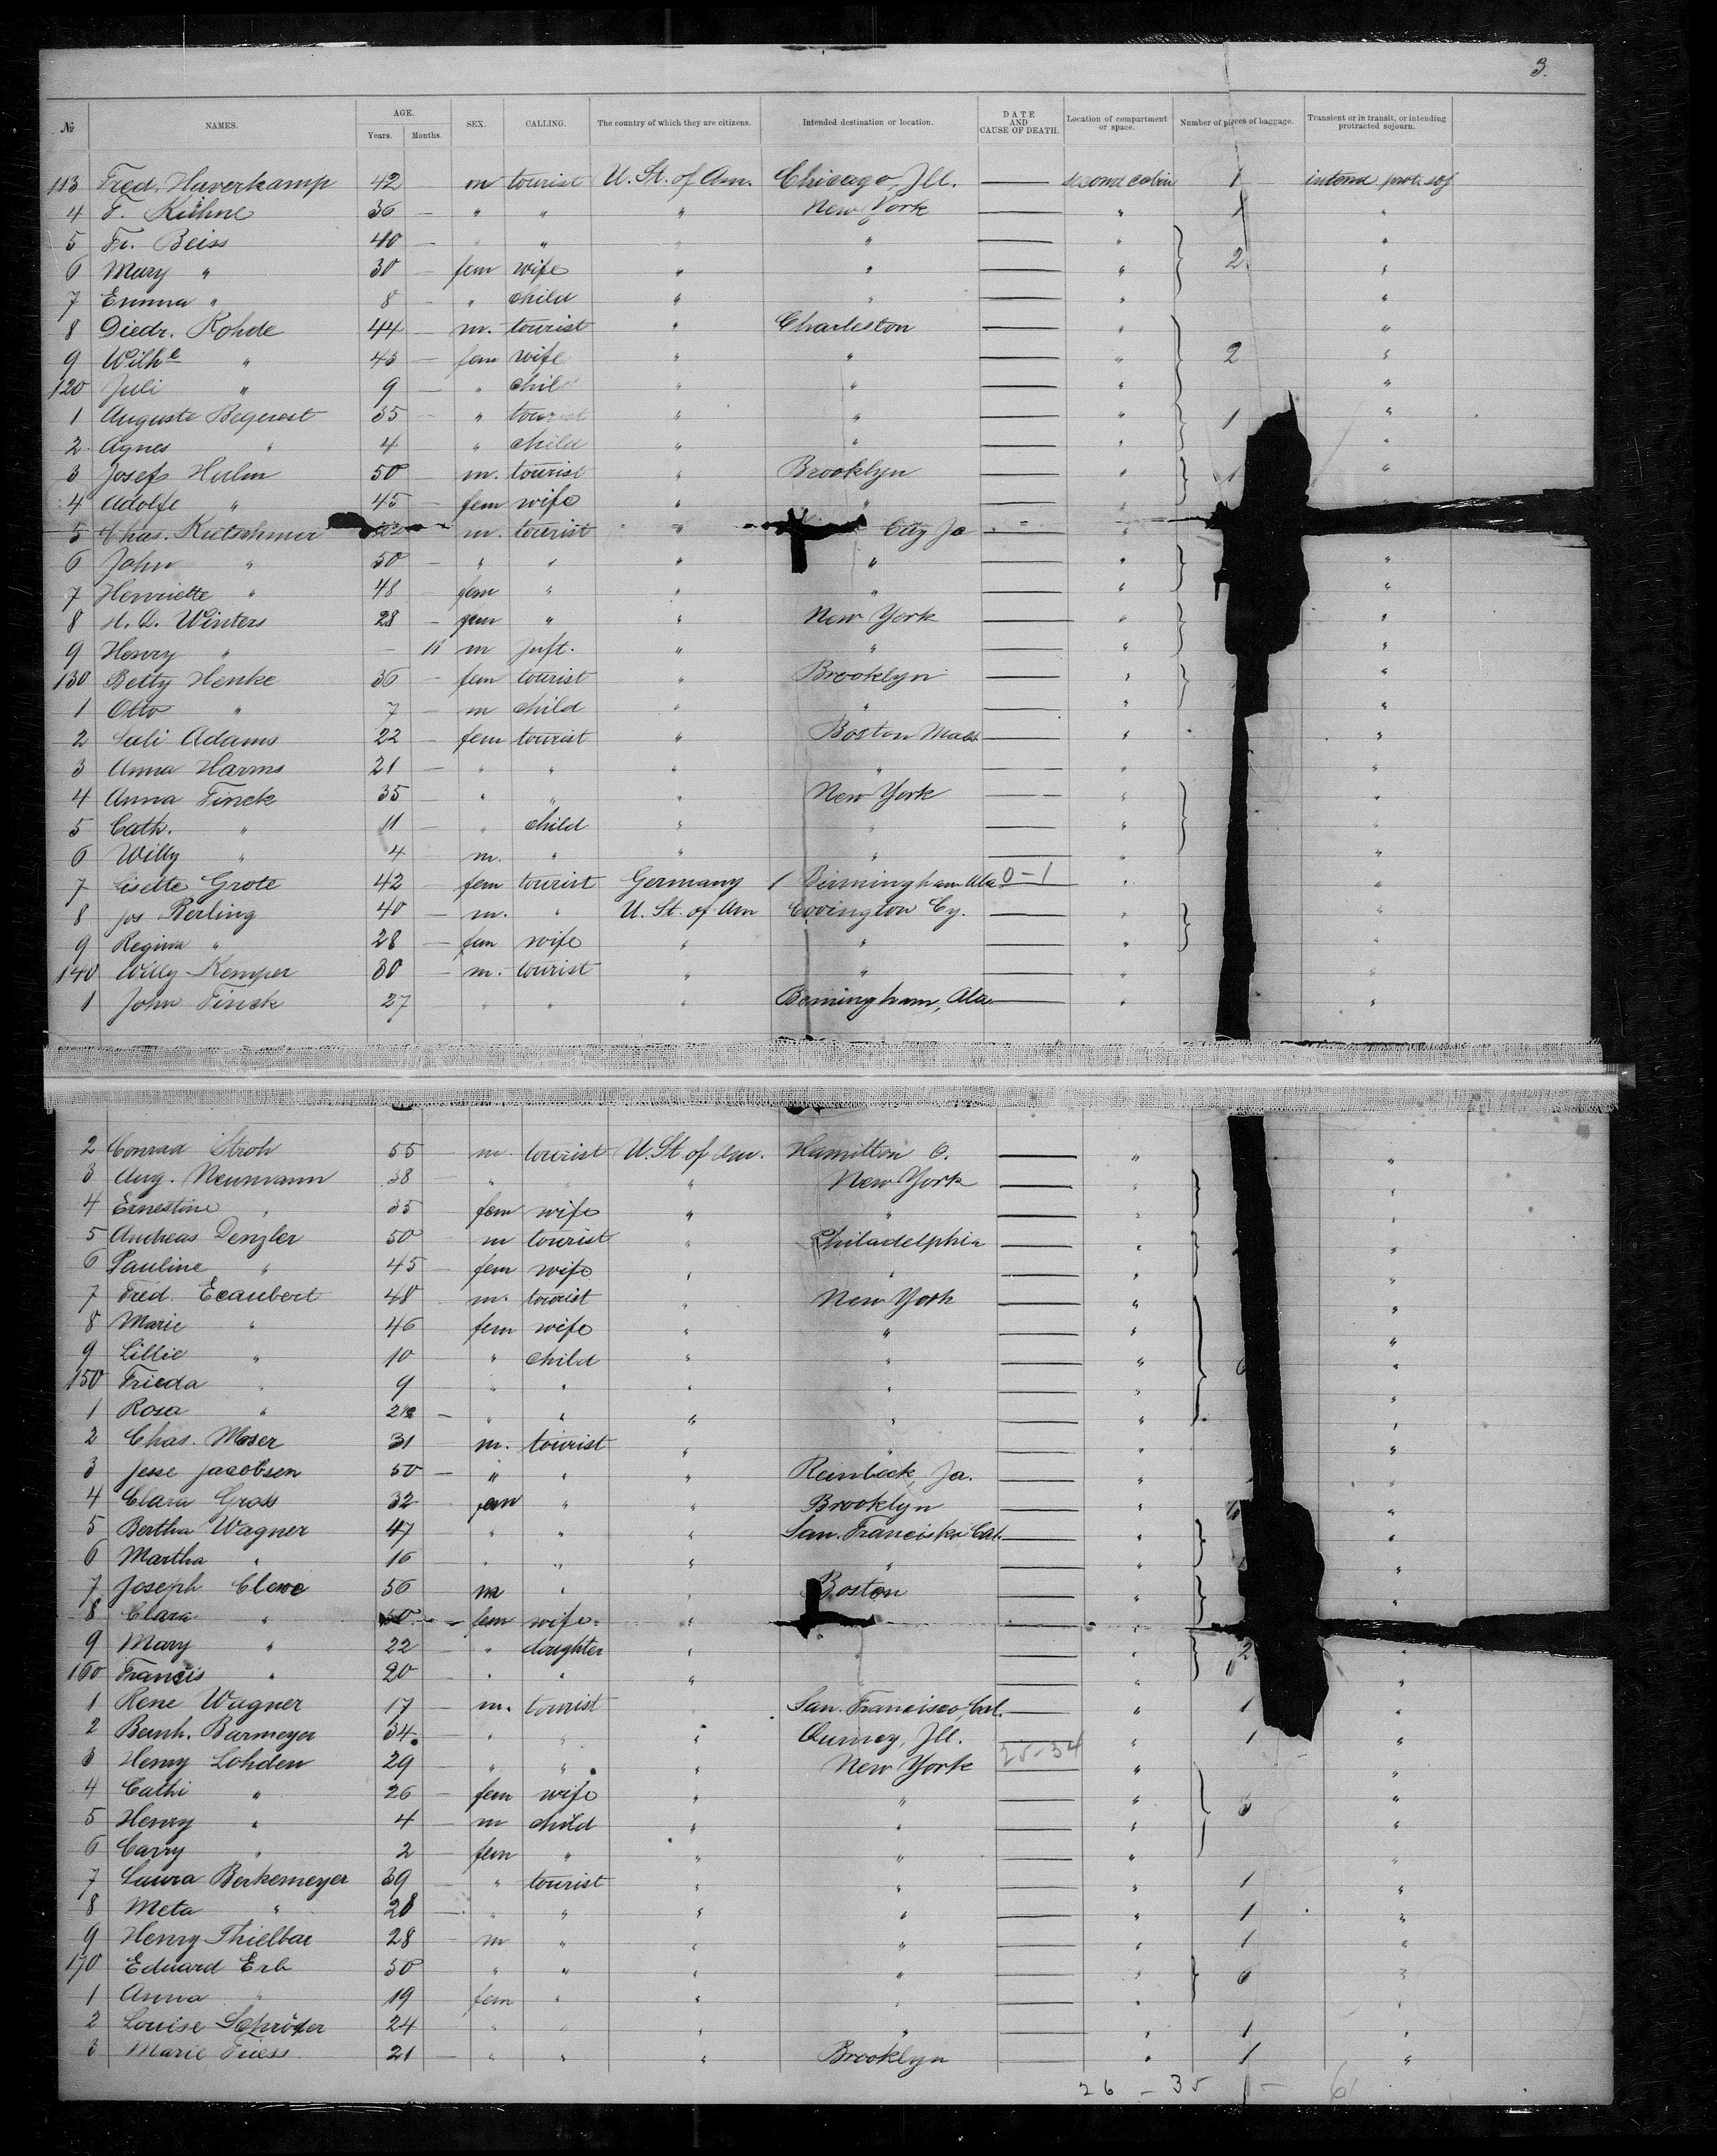 3.
№ NAMES. AGE. Years. Months. SEX. CALLING. The country of which they are citizens. Intended destination or location. DATE AND CAUSE OF DEATH. Location of compartment or space. Number of pieces of baggage. Transient or in transit, or intending protracted sojourn.
113 Fred. Haverkamp 42 m tourist U. St. of Am. Chicago, Ill. — second cabin 1 intend prot. soj
4 F. Kühne 36 — " " " New York — " 1 "
5 Fr. Beiss 40 — " " " " — " "
6 Mary " 30 — fem wife " " — " 2 "
7 Emma " 8 — " child " " — " "
8 Diedr. Rohde 44 — m. tourist " Charleston — " "
9 Wilhe " 45 — fem wife " " — " 2 "
120 Juli " 9 — " child " " — " "
1 Auguste Bequest 35 — " tourist " " — " 1 "
2 Agnes " 4 " child " " — " "
3 Josef Hulm 50 — m. tourist " Brooklyn — " 1 "
4 Adolfe " 45 — fem wife " " — "
5 Chas. Kutschmer m. tourist " City Ja — "
6 John " 50 — " " " " — " "
7 Henriette " 48 fem " " " — " "
8 H. D. Winters 28 — fem " " New York — " "
9 Henry " — 11 m Juft. " " — " "
130 Betty Henke 36 — fem tourist " Brooklyn — " "
1 Otto " 7 — m child " " — " "
2 Sali Adams 22 — fem tourist " Boston Mass — " "
3 Anna Harms 21 — " " " " — " "
4 Anna Finck 35 — " " " New York — " "
5 Cath. " 11 — " child " " — " "
6 Willy " 4 m. " " " — " "
7 Lisette Grote 42 — fem tourist Germany 1 Birmingham Ala 0-1 " "
8 Jos Berling 40 — m. " U. St. of Am Covington Cy. — " "
9 Regina " 28 — fem wife " " — " "
140 Willy Kemper 30 — m. tourist " " — " "
1 John Finck 27 " " " Bemingham, Ala — " "
2 Conrad Stroh 55 — m. tourist U. St. of Am. Hamilton O. — " "
3 Aug. Neumann 38 — " " " New York — " "
4 Ernestine " 35 — fem wife " " — " "
5 Andreas Denzler 50 — m tourist " Philadelphia — " "
6 Pauline " 45 — fem wife " " — " "
7 Fred. Ecaubert 48 m. tourist " New York — " "
8 Marie " 46 — fem wife " " — " "
9 Lillie " 10 — " child " " — " "
150 Frieda " 9 — " " " " — " "
1 Rosa " — " " " " — " "
2 Chas. Moser 31 — m. tourist " " — " "
3 Jesse Jacobsen 50 — " " " Reinbeck, Ja. — " "
4 Clara Gross 32 — fem " " Brooklyn — " "
5 Bertha Wagner 47 — " " " San. Francisko Cal. — " "
6 Martha " 16 — " " " " — " "
7 Joseph Clewe 56 — m " " Boston — " "
8 Clara " 50 — fem wife " — "
9 Mary " 22 — " doughter " " — " 2 "
160 Francis " 20 — " " " " — " "
1 Rene Wagner 17 — m. tourist San. Francisco, Cal. — " 1 "
2 Bernh. Barmeyer 34 — " " " Quincy, Ill. — " 1 "
3 Henry Lohden 29 — " " " New York 25-34 " "
4 Cathi " 26 — fem wife " " — " "
5 Henry " 4 — m child " " — " 3 "
6 Carry " 2 — fem " " " — " "
7 Laura Berkemeyer 39 — " tourist " " — " 1 "
8 Meta " 28 — " " " " — " 1 "
9 Henry Thielbar 28 — m " " " — " 1 "
170 Eduard Erb 50 — " " " " — " 6 "
1 Anna " 19 — fem " " " — " "
2 Louise Schröder 24 — " " " " — " 1 "
3 Marie Fuess 21 — " " " Brooklyn — " 1 "
26 - 35 1 - 6